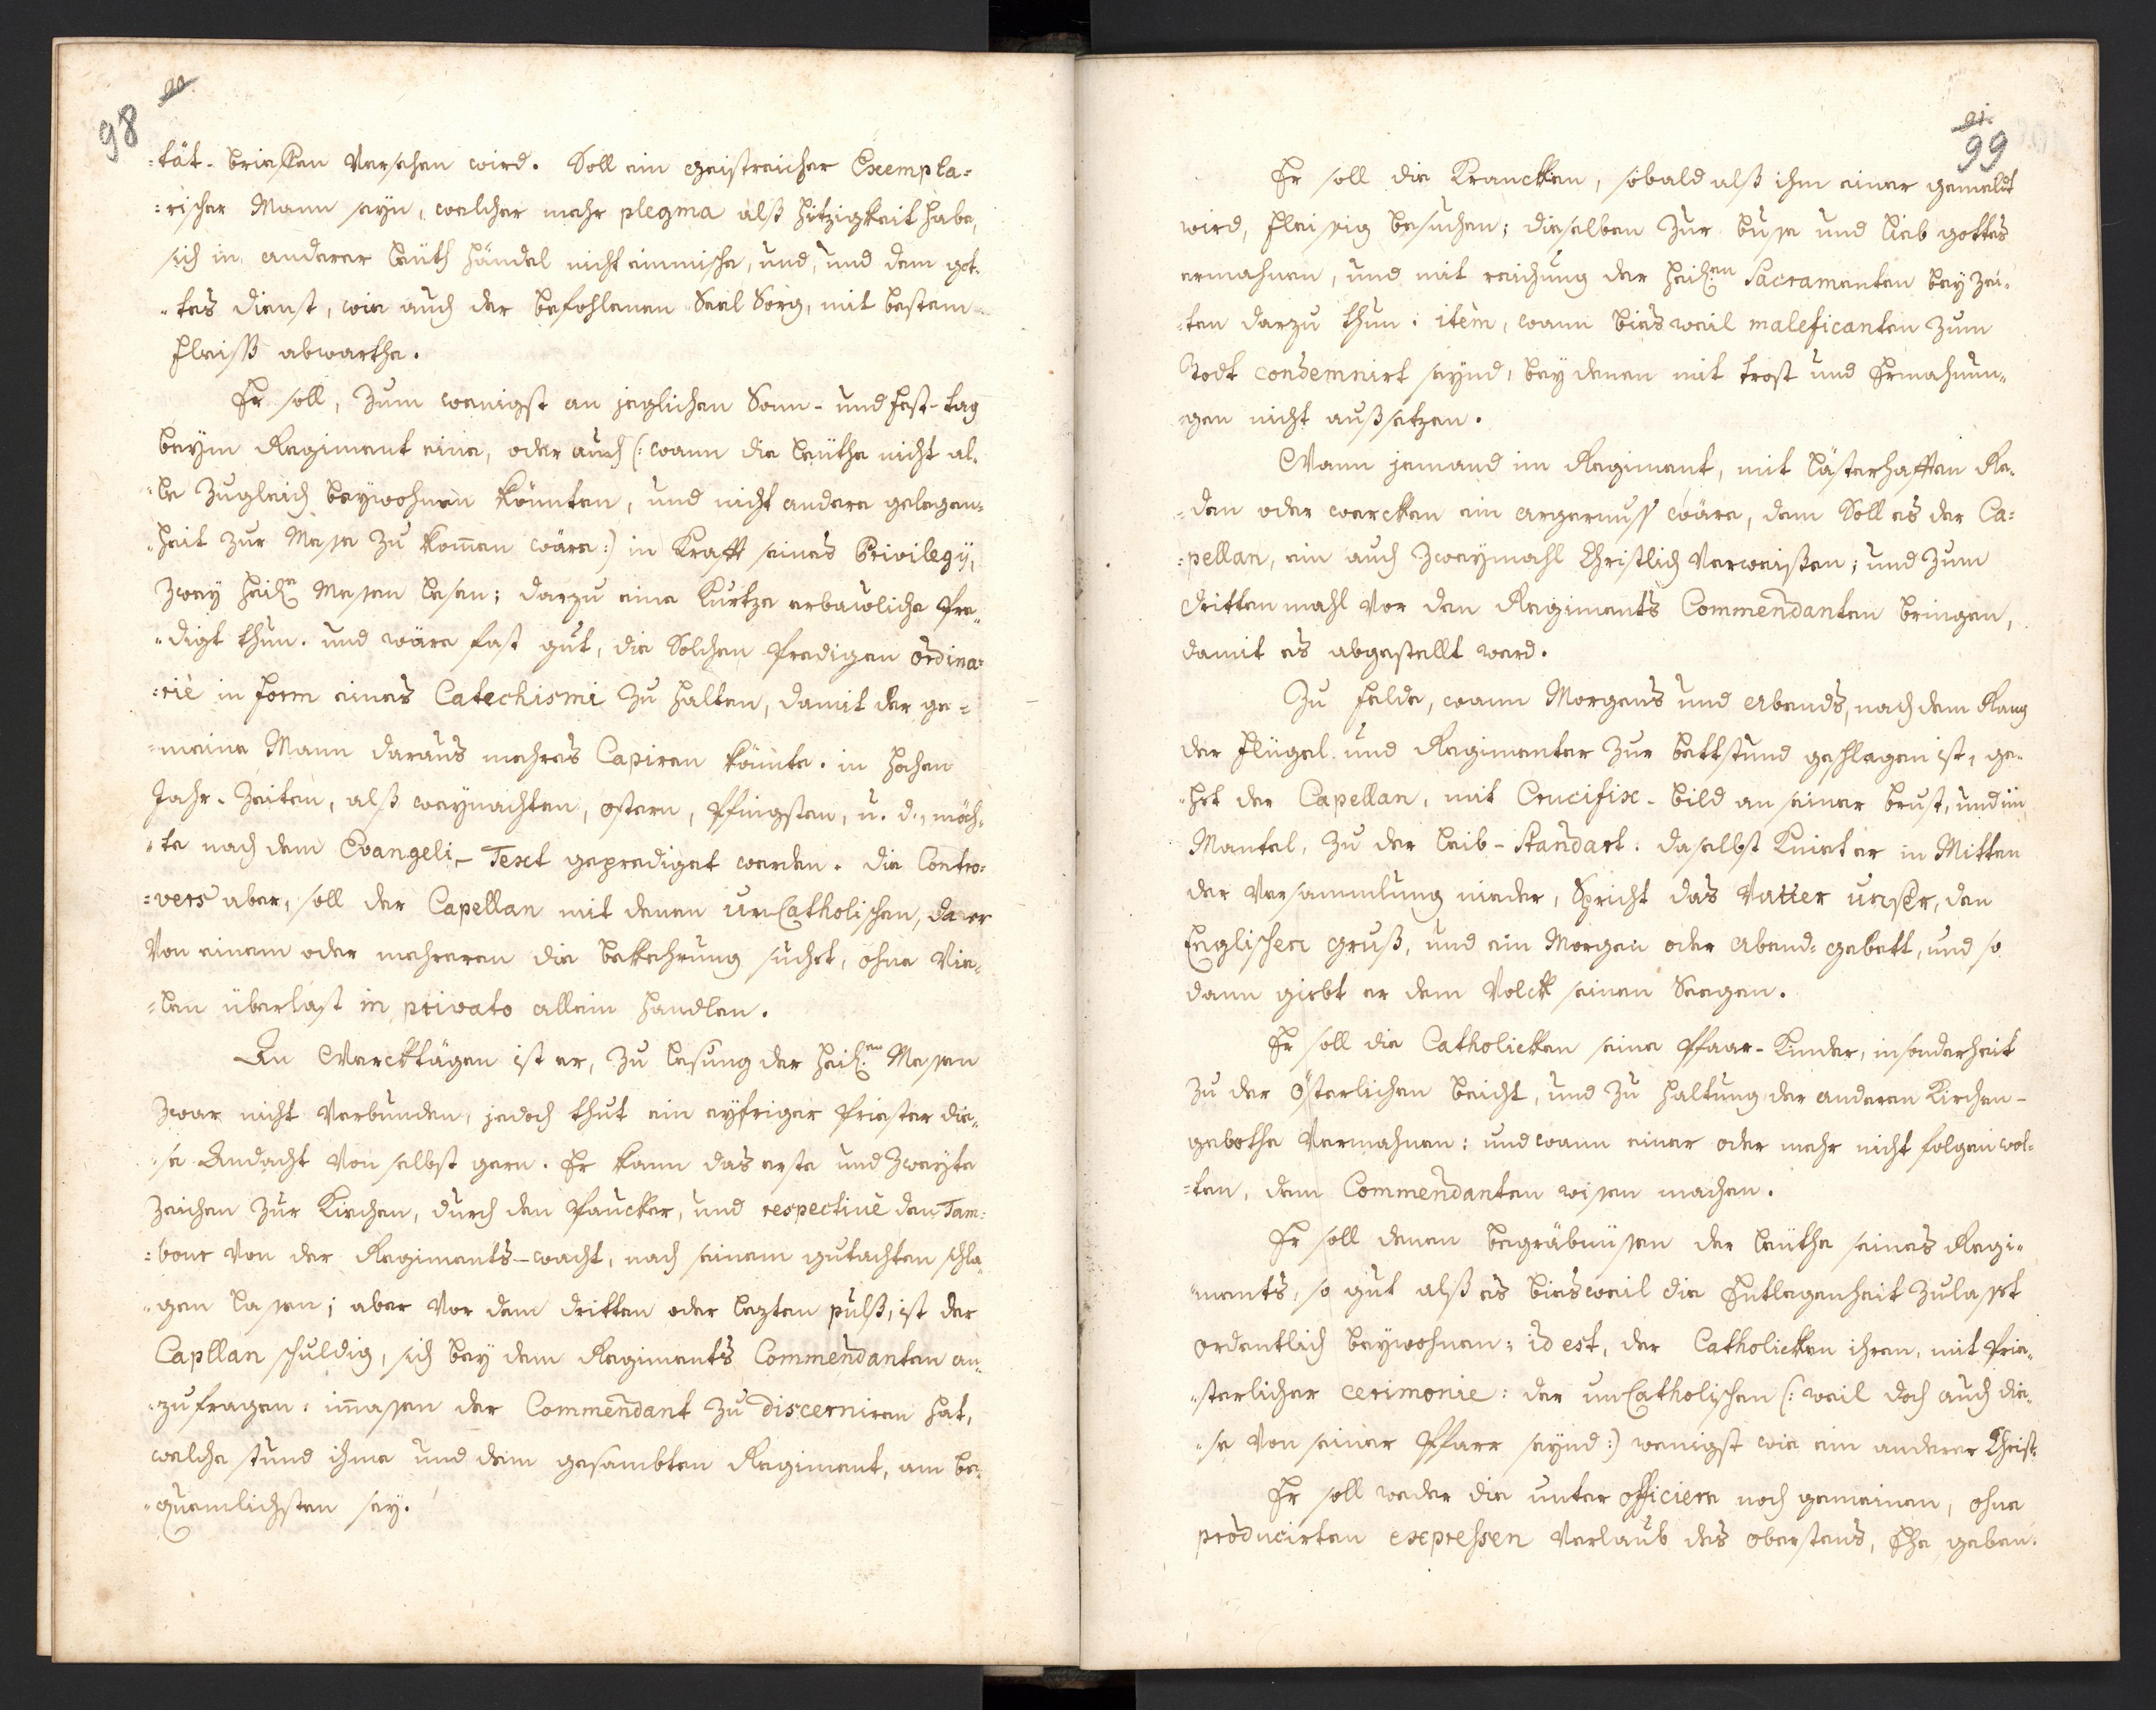 98
:tät-brieffen versehen wird. Soll ein geistreicher Exempla:
:rischer Mann seyn, welcher mehr plegma alß hitzigkeit habe,
sich in anderer leuth händel nicht einmische, und, und dem got:
:tes dienst, wie auch der befohlenen Seel Sorg, mit bestem
fleiß abwarthe.
Er soll, zum wenigst an jeglichen Sonn- und fest-tag
beym Regiment eine, oder auch (: wann die leuthe nicht al:
:le zugleich beywohnen könten, und nicht andere gelegen:
:heit zur Messe zu kom̄en wäre:) in Krafft seines Privilegÿ,
zwey heil:n Messen lesen; darzu eine kurtze erbawliche Pre:
:digt thun. und wäre fast gut, die Solchen Predigen ordina:
:riè in form eines Catechismi zu halten, damit der ge:
:meine Mann daraus mehres Capiren könte. in hohen
Jahr-zeiten, alß weynachten, ostern, Pfingsten, u. d., möch:
:te nach dem Evangeli-Text geprediget werden. die Contro:
:vers aber, soll der Capellan mit denen un-Catholischen, da er
von einem oder mehreren die bekehrung suchet, ohne vie:
:len überlast in privato allein handlen.
An Wercktägen ist er, zu lesung der heil:en Messen
zwar nicht verbunden, jedoch thut ein eyfriger Priester die:
:se Andacht von selbst gern. Er kann das erste und zweyte
zeichen zur Kirchen, durch den Paucker, und respectivè den Tam:
:bour von der Regiments-wacht, nach seinem gutachten schla:
:gen lassen; aber vor dem dritten oder lezten pulß, ist der
Capllan schuldig, sich bey dem Regiments Commendanten an:
:zufragen, im̄assen der Commendant zu discerniren hat,
welche stund ihme und dem gesambten Regiment, am be:
:quemlichsten sey.
99
Er soll die Krancken, sobald alß ihm einer gemeldt
wird, fleissig besuchen; dieselben zur busse und lieb gottes
ermahnen, und mit reichung der heil:en Sacramenten bey zei:
:ten darzu thun: itèm, wann biesweil maleficanten zum
Todt condemnirt seynd, bey denen mit trost und Ermahnun:
:gen nicht außsetzen.
Wann jemand im Regiment, mit lästerhafften Re:
:den oder wercken ein argernuss wäre, dem Soll es der Ca:
:pellan, ein auch zweymahl Christlich verweißen; und zum
dritten mahl vor den Regiments Commendanten bringen,
damit es abgestellt werd.
Zu felde, wann Morgens und Abends, nach dem Rang
der flügel und Regimenter zur bettstund geschlagen ist, ge:
:het der Capellan, mit Crucifix-bild an seiner brust, und im
Mantel, zu der leib-Standart. daselbst kniet er in Mitten
der versammlung nieder, Spricht das Vatter unser, den
Englischen gruß, und ein Morgen oder Abend: gebett, und so
dann giebt er dem Volck seinen Seegen.
Er soll die Catholicken seine Pfaar-Kinder, insonderheit
zu der österlichen beicht, und zu haltung der anderen Kirchen-
gebothe vermahnen: und wann einer oder mehr nicht folgen wol:
:ten, dem Commendanten wissen machen.
Er soll denen begräbnussen der leuthe seines Regi:
:ments, so gut alß es biesweil die Entlegenheit zulasset
ordentlich beywohnen: id est, der Catholicken ihren, mit Prie:
:sterlicher cerimonie: der un Catholischen (: weil doch auch die:
:se von seiner Pfarr seynd:) wenigst wie ein anderer Christ.
Er soll weder die unter officiern noch gemeinen, ohne
producirten expressen verlaub des oberstens, Ehe geben.